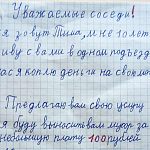 Уважаемые соседи!
я зовут Тима, мне 10 лет
иву с вами в одном подъезд
ас я коплю деньги на свою
Предлагаю вам свою услугу
я буду выносить вам мусор за
небольшую плату 100 рублей